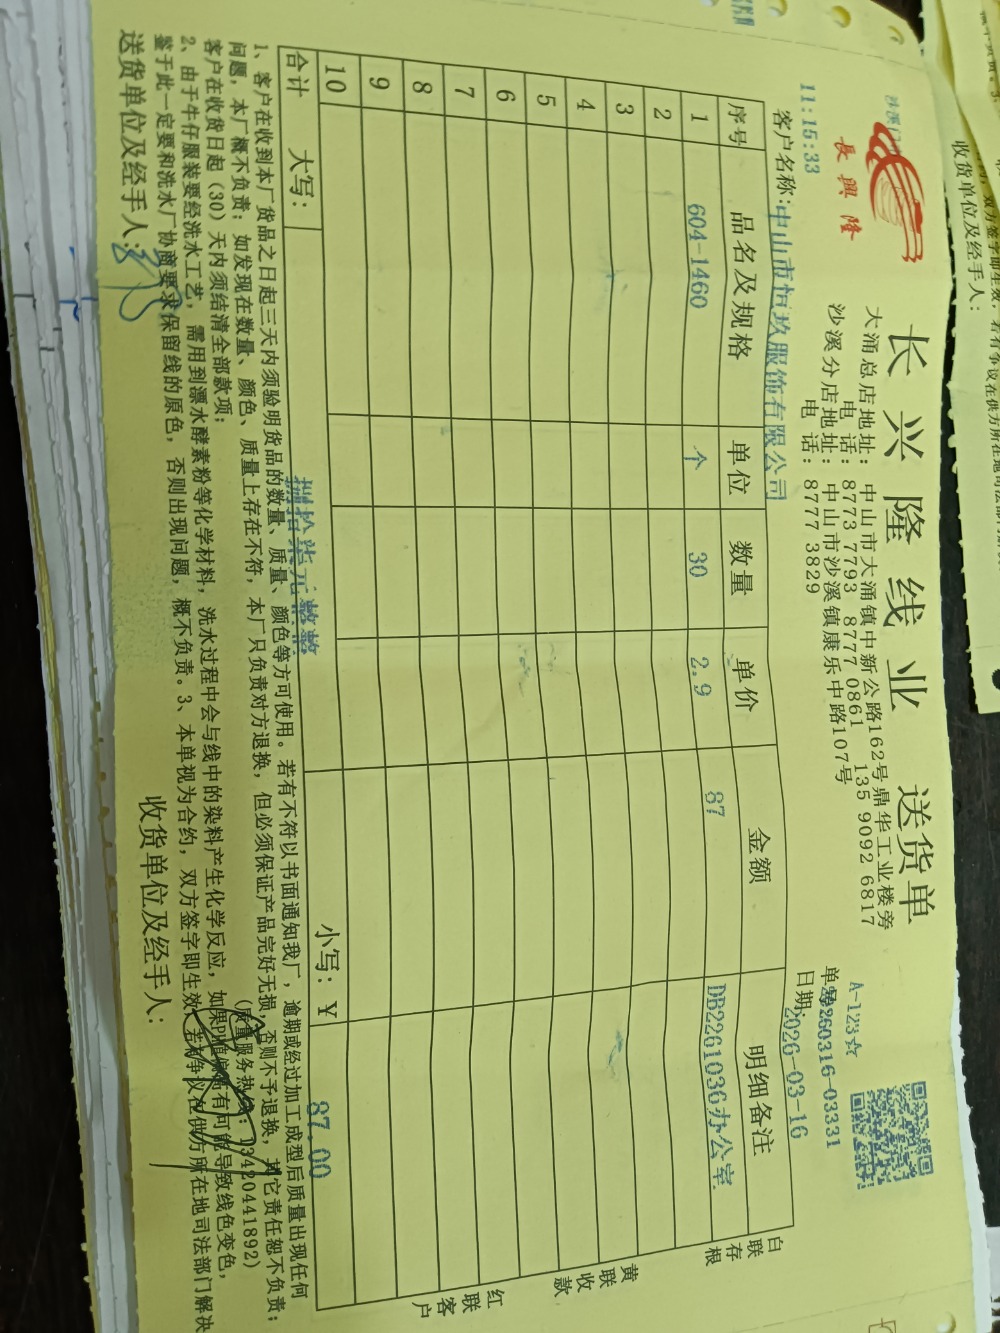 长兴隆线业 送货单
長興隆
大涌总店地址：中山市大涌镇中新公路162号鼎华工业楼旁
电 话：8773 7793 8777 0861 135 9092 6817
沙溪分店地址：中山市沙溪镇康乐中路107号
电 话：8777 3829
A-123☆
单号
20260316-03331
日期：2026-03-16
11:15:33
客户名称：中山市恒玖服饰有限公司
序号 品名及规格 单位 数量 单价 金额 明细备注
1 604-1460 个 30 2.9 87 DB2261036办公室
2
3
4
5
6
7
8
9
10
合计 大写： 捌拾柒元整 小写：¥ 87.00
白联存根
黄联收款
红联客户
1、客户在收到本厂货品之日起三天内须验明货品的数量、质量、颜色等方可使用。若有不符以书面通知我厂，逾期或经过加工成型后质量出现任何
问题，本厂概不负责；如发现在数量、颜色、质量上存在不符，本厂只负责对方退换，但必须保证产品完好无损，否则不予退换，其它责任恕不负责；
客户在收货日起（30）天内须结清全部款项；（质量服务热线：13420441892）
2、由于牛仔服装要经洗水工艺，需用到漂水酵素粉等化学材料，洗水过程中会与线中的染料产生化学反应，如果PH值偏高有可能导致线色变色，
鉴于此一定要和洗水厂协商要求保留线的原色，否则出现问题，概不负责。3、本单视为合约，双方签字即生效，若有争议在供方所在地司法部门解决
送货单位及经手人：
收货单位及经手人：
收货单位及经手人：